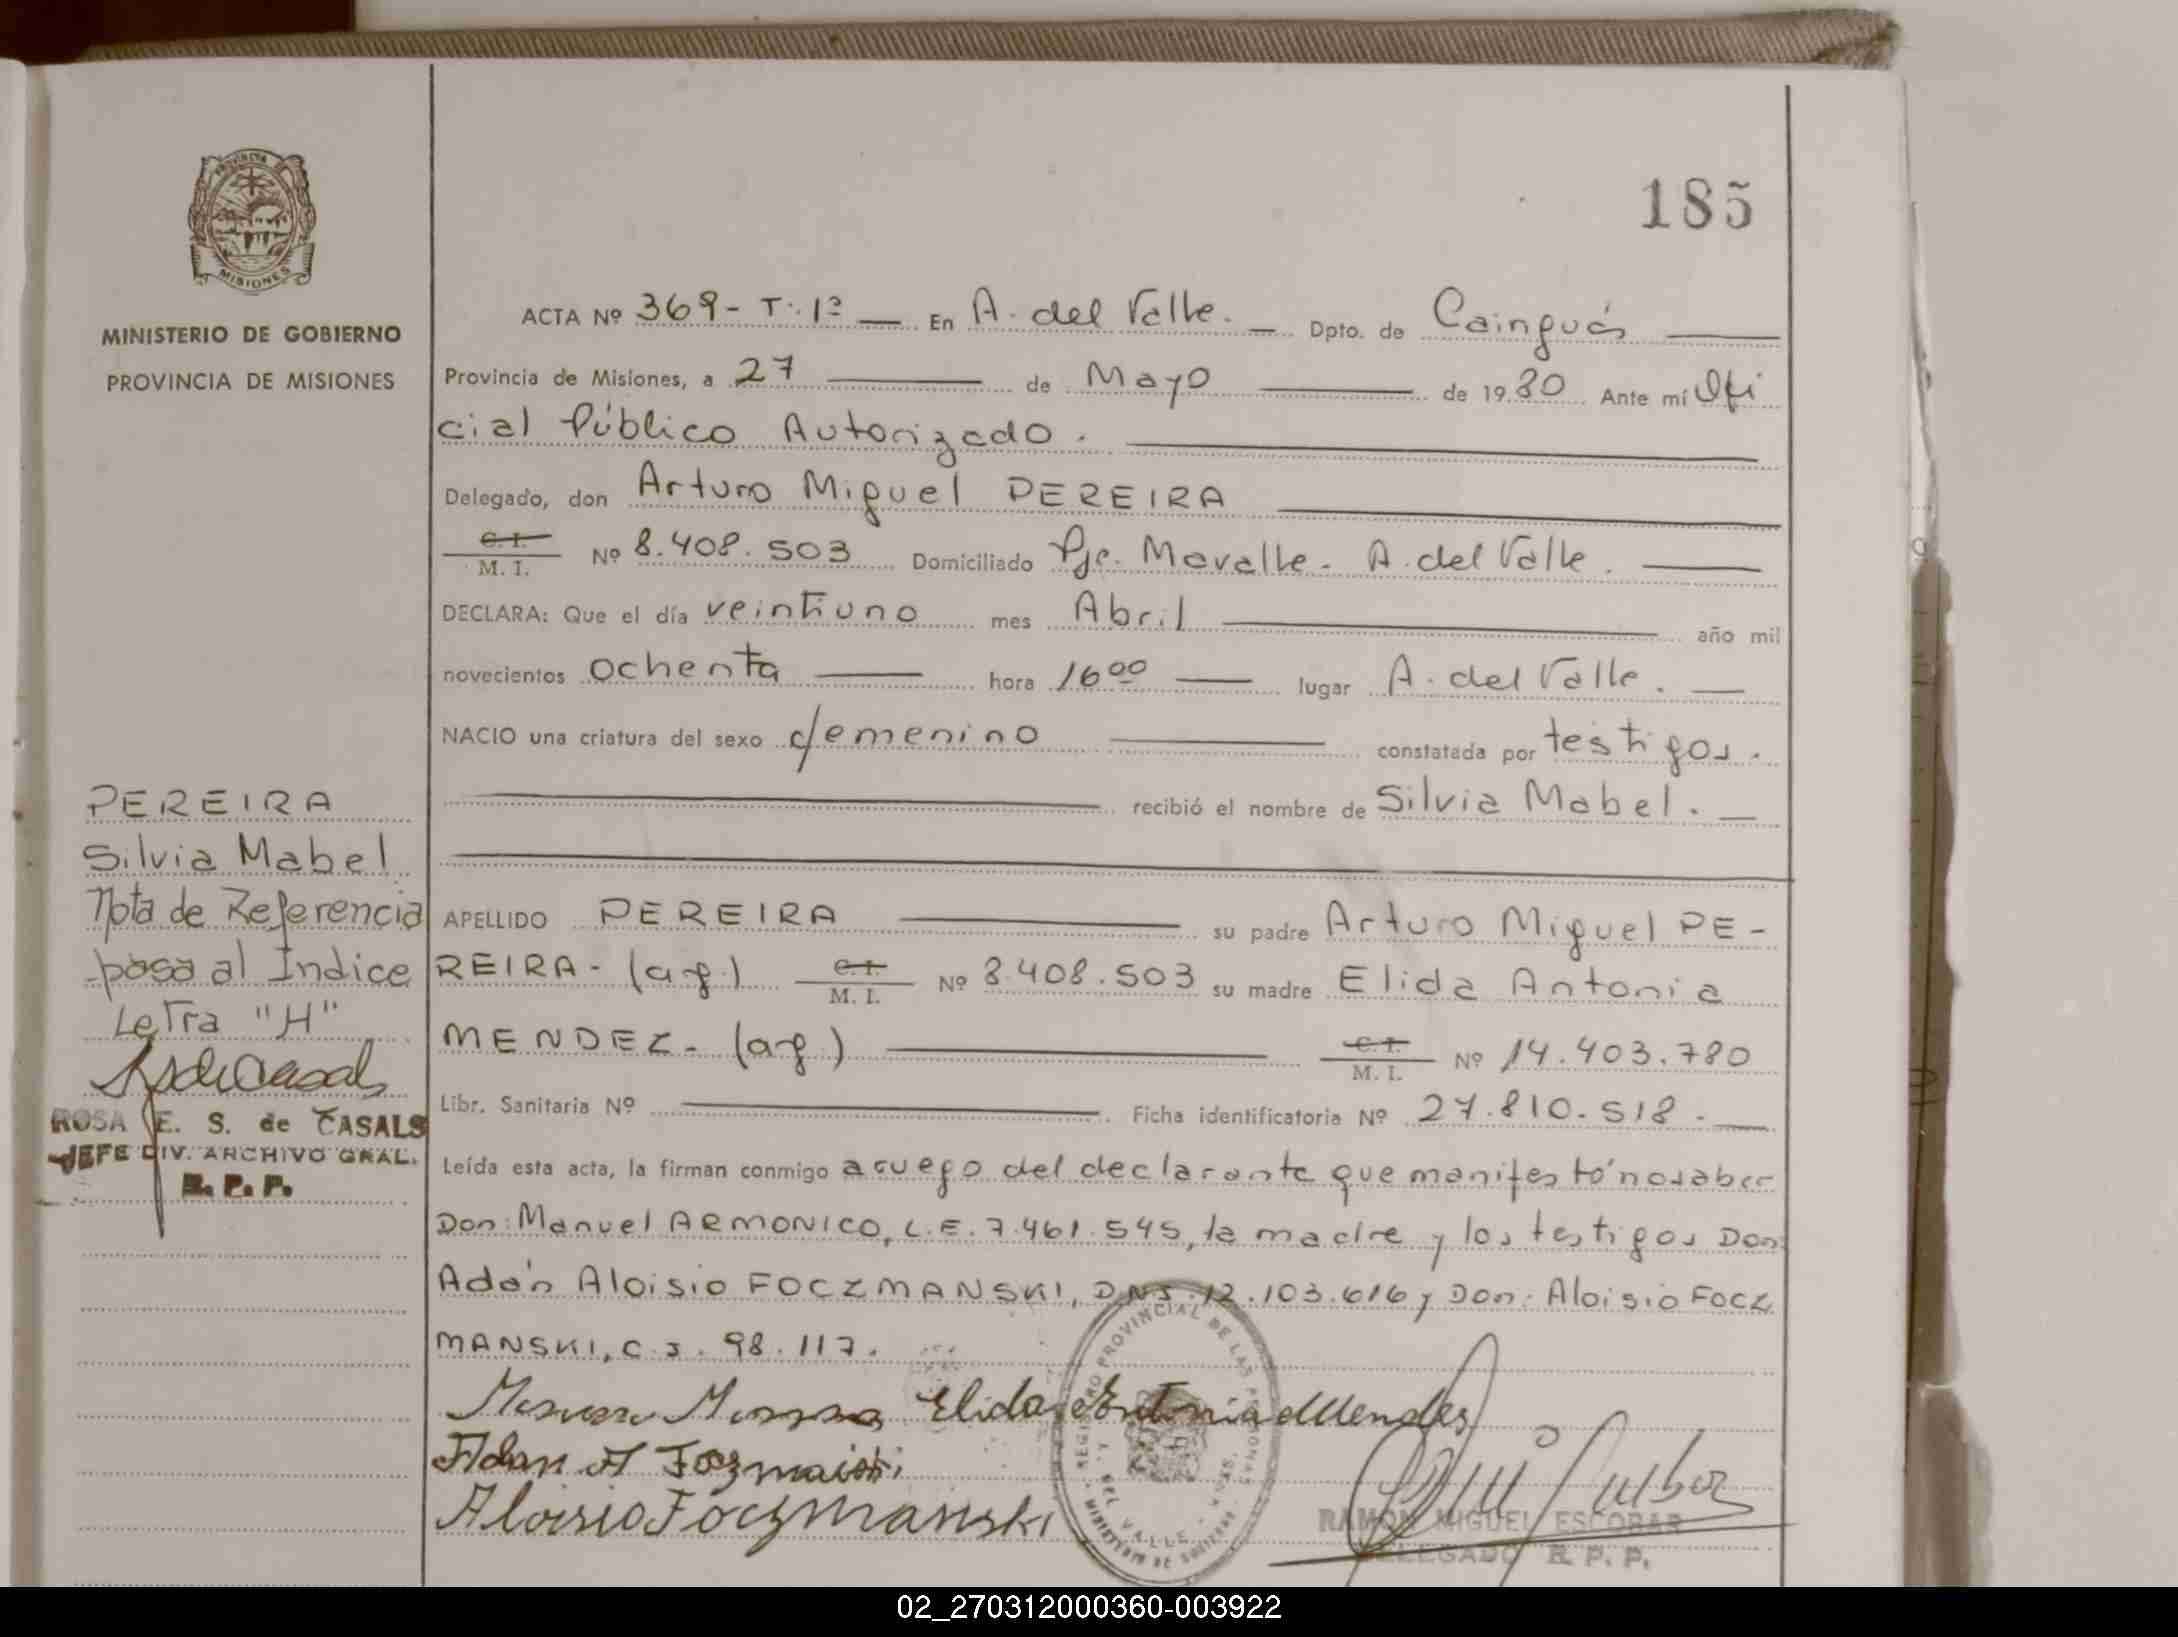 185
PROVINCIA DE
MISIONES
MINISTERIO DE GOBIERNO
PROVINCIA DE MISIONES
ACTA Nº 369 - T. 1º — En A. del Valle. — Dpto. de Cainguás —
Provincia de Misiones, a 27 — de Mayo — de 1980 Ante mí Ofi
cial Público Autorizado. —
Delegado, don Arturo Miguel PEREIRA —
C. I.
M. I. Nº 8.408.503 Domiciliado Pje. Mavalle - A. del Valle. —
DECLARA: Que el día veintiuno mes Abril — año mil
novecientos ochenta — hora 16 00 — lugar A. del Valle. —
NACIO una criatura del sexo femenino — constatada por testigos.
— recibió el nombre de Silvia Mabel. —
APELLIDO PEREIRA — su padre Arturo Miguel PE-
REIRA - (arg.) C. I. M. I. Nº 8.408.503 su madre Elida Antonia
MENDEZ - (arg.) — C. I. M. I. Nº 14.403.780
Libr. Sanitaria Nº — Ficha identificatoria Nº 27.810.518. —
Leída esta acta, la firman conmigo a ruego del declarante que manifestó no saber
Don: Manuel ARMONICO, L.E. 7.461.545, la madre y los testigos Don
Adán Aloisio FOCZMANSKI, DNI 12.103.616 y Don: Aloisio FOCZ
MANSKI, C.I. 98.117.
Elida Antonia Mendes
Adan A
Aloisio Foczmanski
REGISTRO PROVINCIAL DE LAS PERSONAS
DEL VALLE
MINISTERIO DE
RAMON MIGUEL ESCOBAR
DELEGADO R. P. P.
PEREIRA
Silvia Mabel
Nota de Referencia
pasa al Indice
Letra "H"
ROSA E. S. de CASALS
JEFE DIV. ARCHIVO GRAL.
R. P. P.
02_270312000360-003922